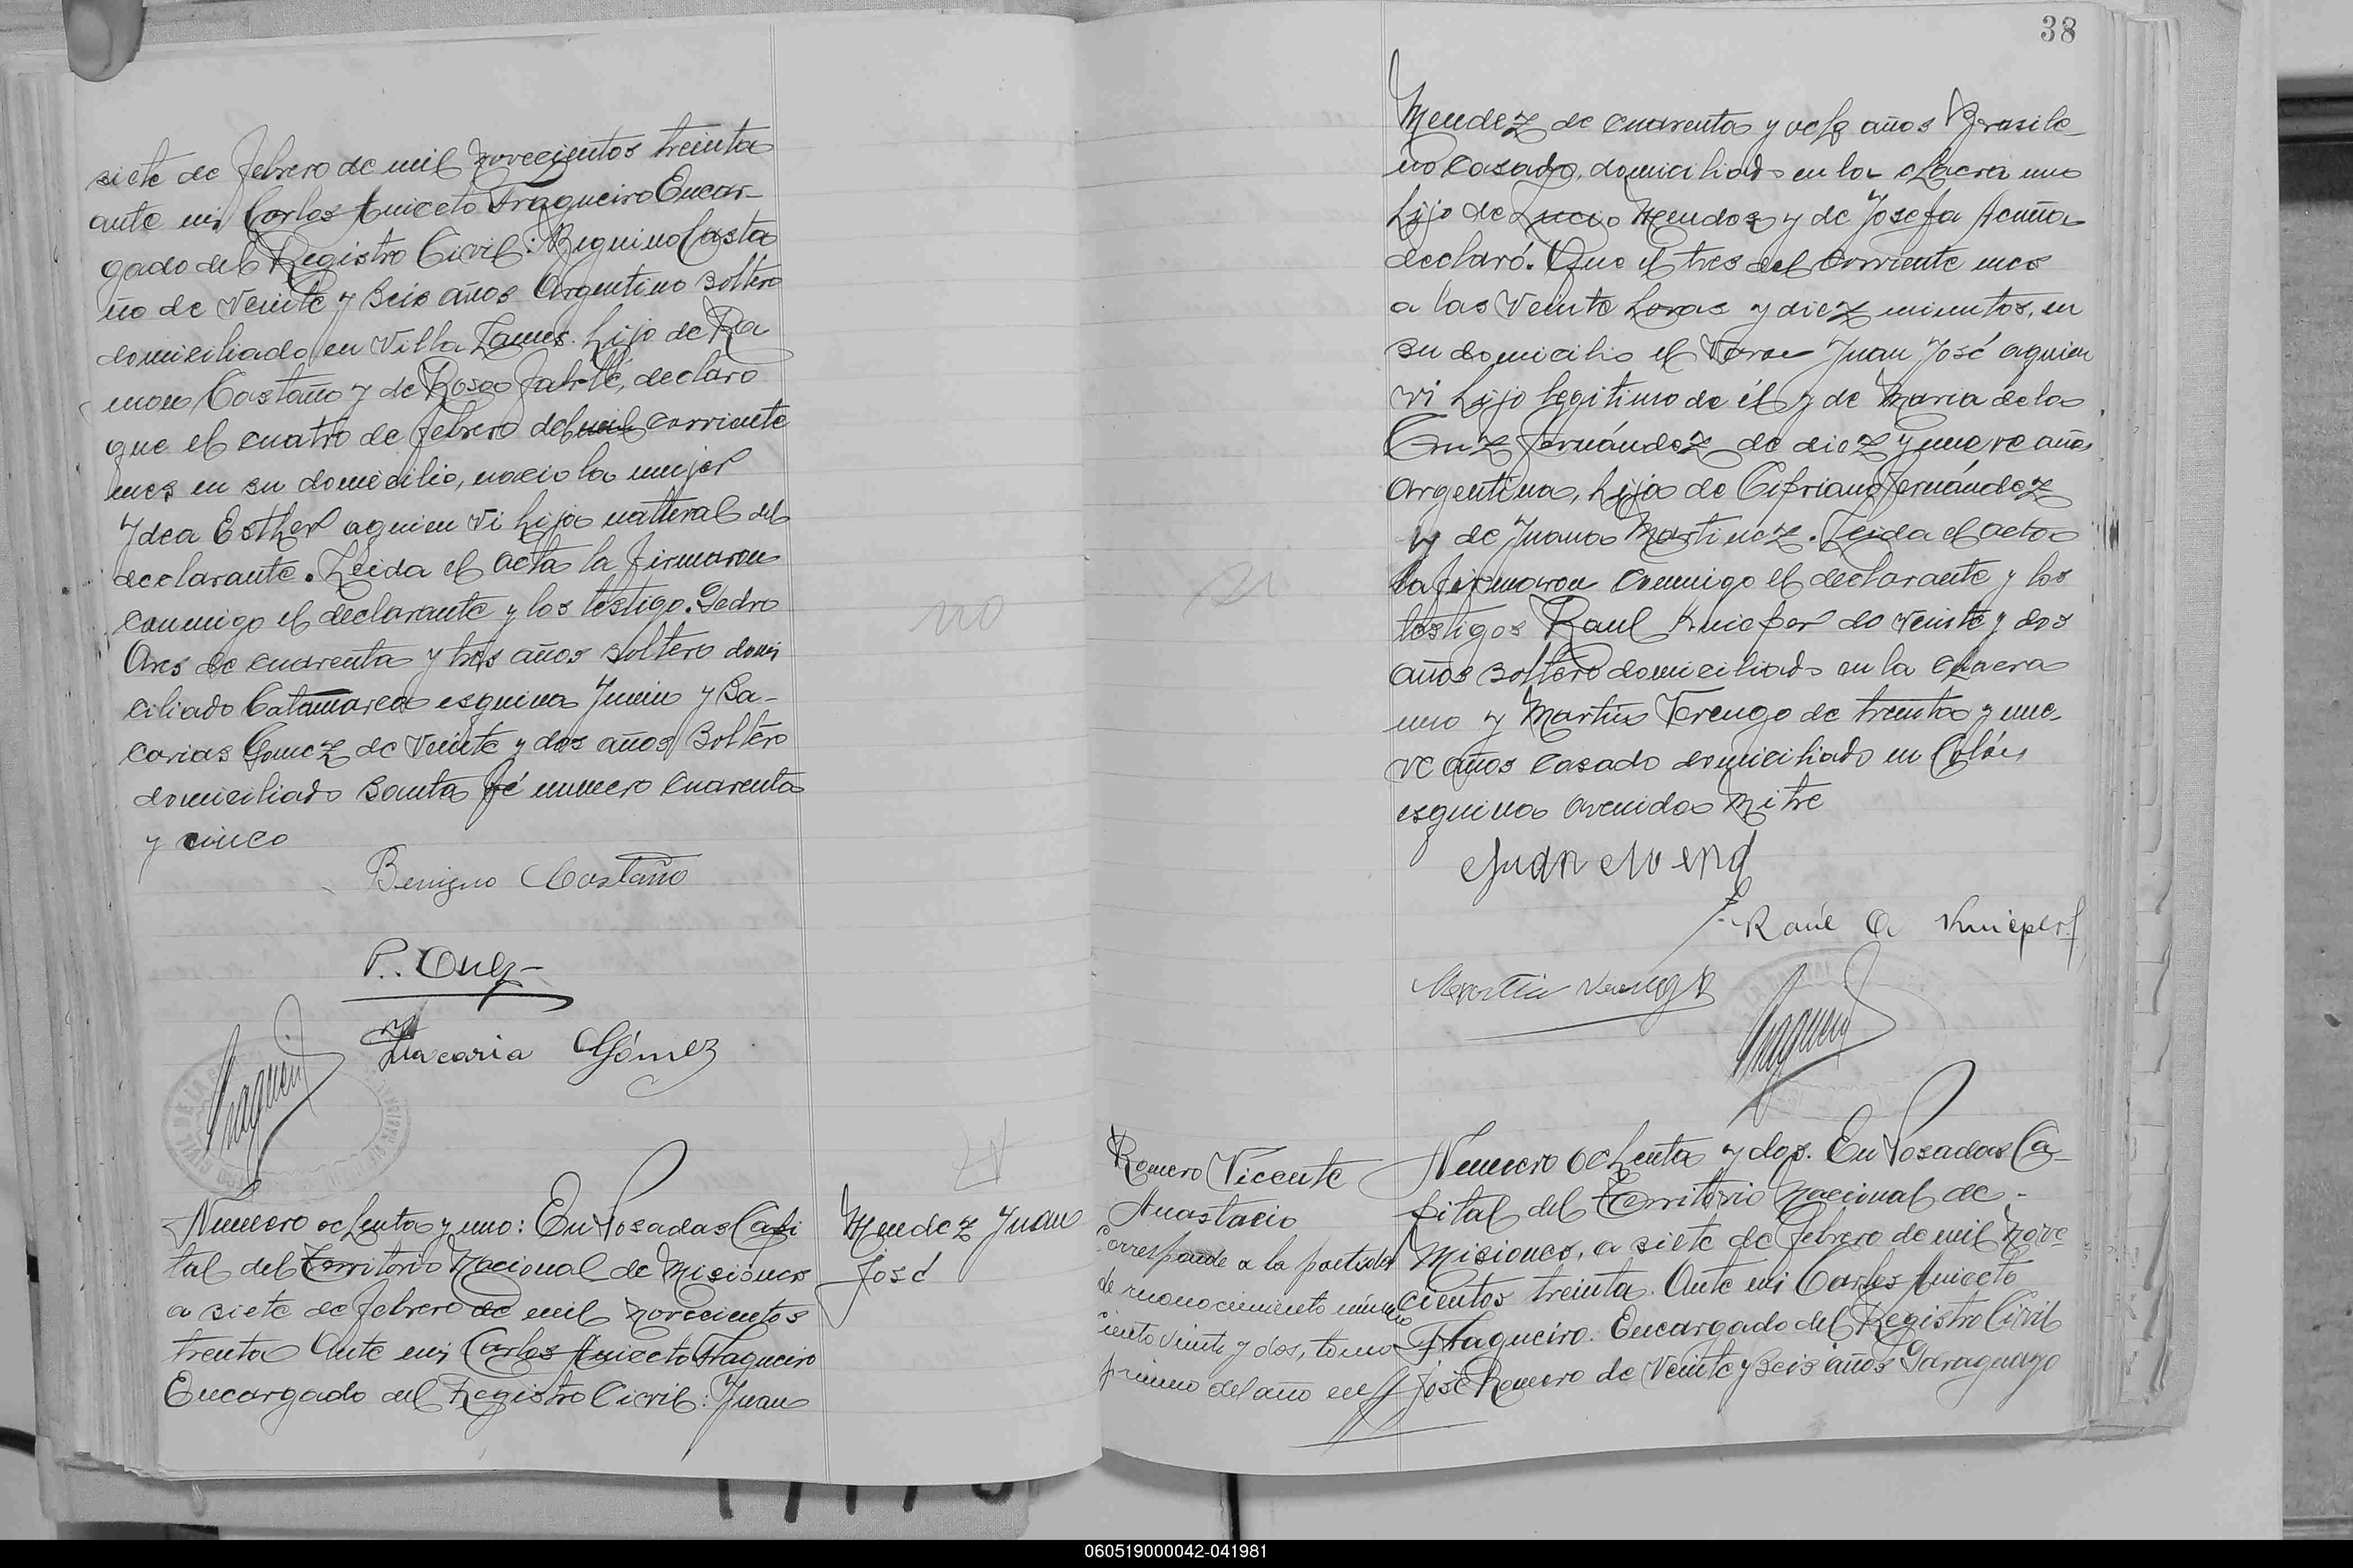 siete de febrero de mil novecientos treinta
ante mi Carlos Aniceto Fragueiro Encar-
gado del Registro Civil: Benigno Casta
ño de veinte y seis años Argentino soltero
domiciliado en Villa Lanus. hijo de Ra
mon Castaño y de Rosa declaro
que el cuatro de febrero del mil corriente
mes en su domicilio, nacio la mujer
Ydea Esther a quien vi hija natural del
declarante. Leida el acta la firmaron
conmigo el declarante y los testigo. Pedro
de cuarenta y tres años soltero domi
ciliado Catamarca esquina Junin y Sa-
carias Gomez de veinte y dos años soltero
domiciliado Santa fé numero cuarenta
y cinco
Benigno Castaño
P.
Zacaria Gómez
no
Numero ochenta y uno: En Posadas Capi
tal del Territorio Nacional de Misiones
a siete de febrero de mil novecientos
trenta Ante mi Carlos Aniceto Fragueiro
Encargado del Registro Civil: Juan
Mendez Juan
José
38
Mendez de cuarenta y ocho años Brasile-
no casado, domiciliado en la chacra uno
hijo de Lucio Mendez y de Josefa Acuña
declaró. Que el tres del corriente mes
a las veinte horas y diez minutos, en
su domicilio el varon Juan José a quien
vi hijo legitimo de él y de Maria de la
Cruz Fernández de diez y nueve años
Argentina, hija de Cipriano Fernández
y de Juana Martinez. Leida el acta
la firmaron conmigo el declarante y los
testigos Raul Knieper de veinte y dos
años soltero domiciliado en la chacra
uno y Martin Verengo de treinta y nue-
ve años casado domiciliado en Colón
esquina avenida Mitre
Juan Mend
Raúl A Knieper
Martin Verengo
Romero Vicente
Anastacio
Corresponde a la partida
de reconocimiento número
ciento veinte y dos, tomo
primero del año
Numero ochenta y dos. En Posadas Ca-
pital del Territorio Nacional de
Misiones, a siete de febrero de mil nove
cientos treinta. Ante mi Carlos Aniceto
Fragueiro. Encargado del Registro Civil
José Romero de veinte y seis años Paraguayo
060519000042-041981